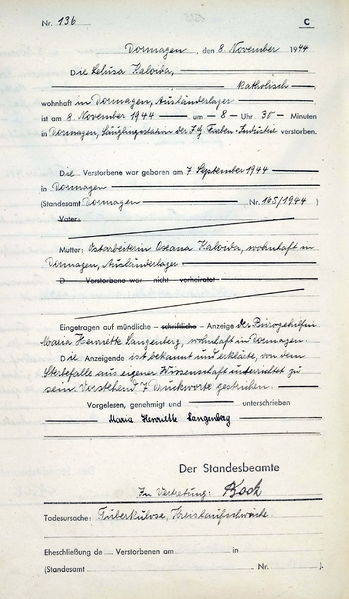 Nr. 136 C
Dormagen, den 8. November 1944
Die Kalowda,
katholisch
wohnhaft in Dormagen, Ausländerlager
ist am 8. November 1944 um 8 Uhr 30 Minuten
in Dormagen, Säuglingsstation der I.G. Farben-Industrie verstorben.
Die Verstorbene war geboren am 7. September 1944
in Dormagen
(Standesamt Dormagen Nr. 165/1944)
Vater:
Mutter: Ostarbeiterin Oxana Kalowda, wohnhaft in
Dormagen, Ausländerlager
D Verstorbene war nicht verheiratet
Eingetragen auf mündliche – schriftliche – Anzeige der Bürogehilfin
Maria Henriette Langenberg, wohnhaft in Dormagen.
Die Anzeigende ist bekannt und erklärte, von dem
Sterbefalle aus eigener Wissenschaft unterrichtet zu
sein. Vorstehend 7 Druckworte gestrichen.
Vorgelesen, genehmigt und unterschrieben
Maria Henriette Langenberg
Der Standesbeamte
In Vertretung: Koch
Todesursache: Tuberkulose, Kreislaufschwäche
Eheschließung de Verstorbenen am in
(Standesamt Nr. ).